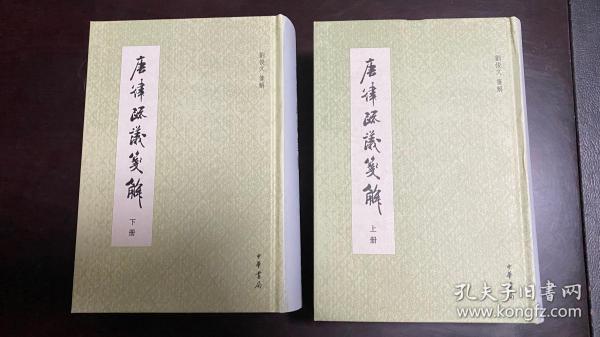 唐律疏議箋解
下册
劉俊文 箋解
中華書局
唐律疏議箋解
上册
劉俊文 箋解
中華書
孔夫子旧书网
www.kongfz.com